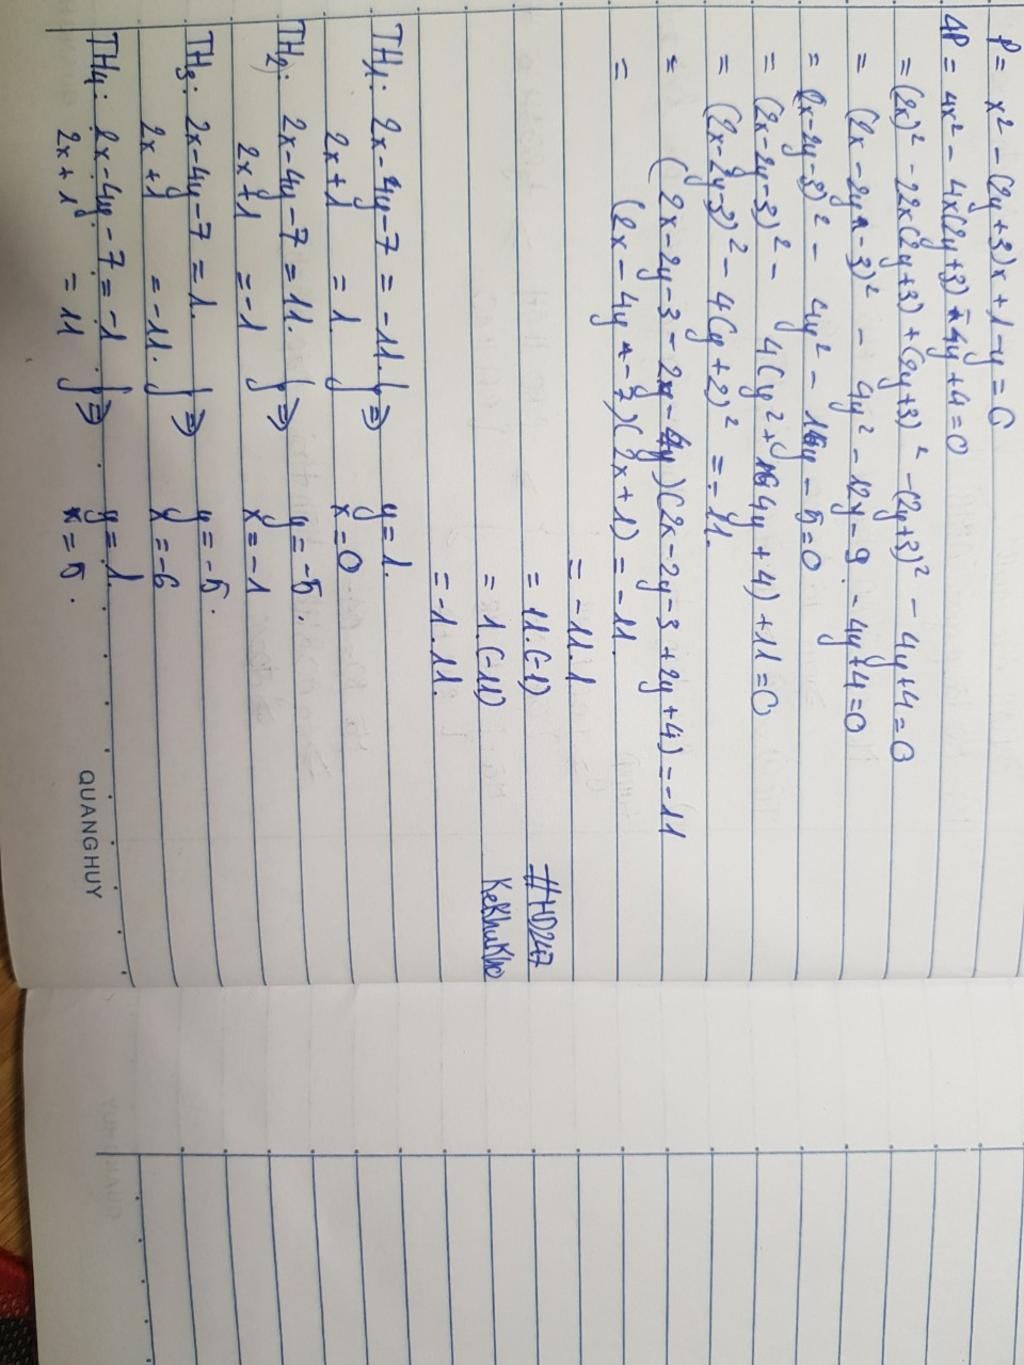 P = x² - (2y+3)x + 1 - y = 0
4P = 4x² - 4x(2y+3) - 4y + 4 = 0
= (2x)² - 22x(2y+3) + (2y+3)² - (2y+3)² - 4y+4 = 0
= (2x - 2y - 3)² - 4y² - 12y - 9 - 4y+4 = 0
= (2x-2y-3)² - 4y² - 16y - 5 = 0
= (2x-2y-3)² - 4(y² + 4y + 4) + 11 = 0
= (2x-2y-3)² - 4(y+2)² = -11.
= (2x-2y-3-2y-4)(2x-2y-3+2y+4) = -11
= (2x - 4y - 7)(2x+1) = -11.
= -11.1
= 11.(-1) #HD247
= 1.(-11) KeKhuKho
= -1.11.
TH1: 2x-4y-7 = -11. } ⇒ y=1.
2x+1 = 1. x=0
TH2: 2x-4y-7 = 11. } ⇒ y=-5.
2x+1 = -1 x=-1
TH3: 2x-4y-7 = 1. } ⇒ y=-5.
2x+1 = -11. x=-6
TH4: 2x-4y-7 = -1 } ⇒ y=1
2x+1 = 11 x=5.
QUANGHUY